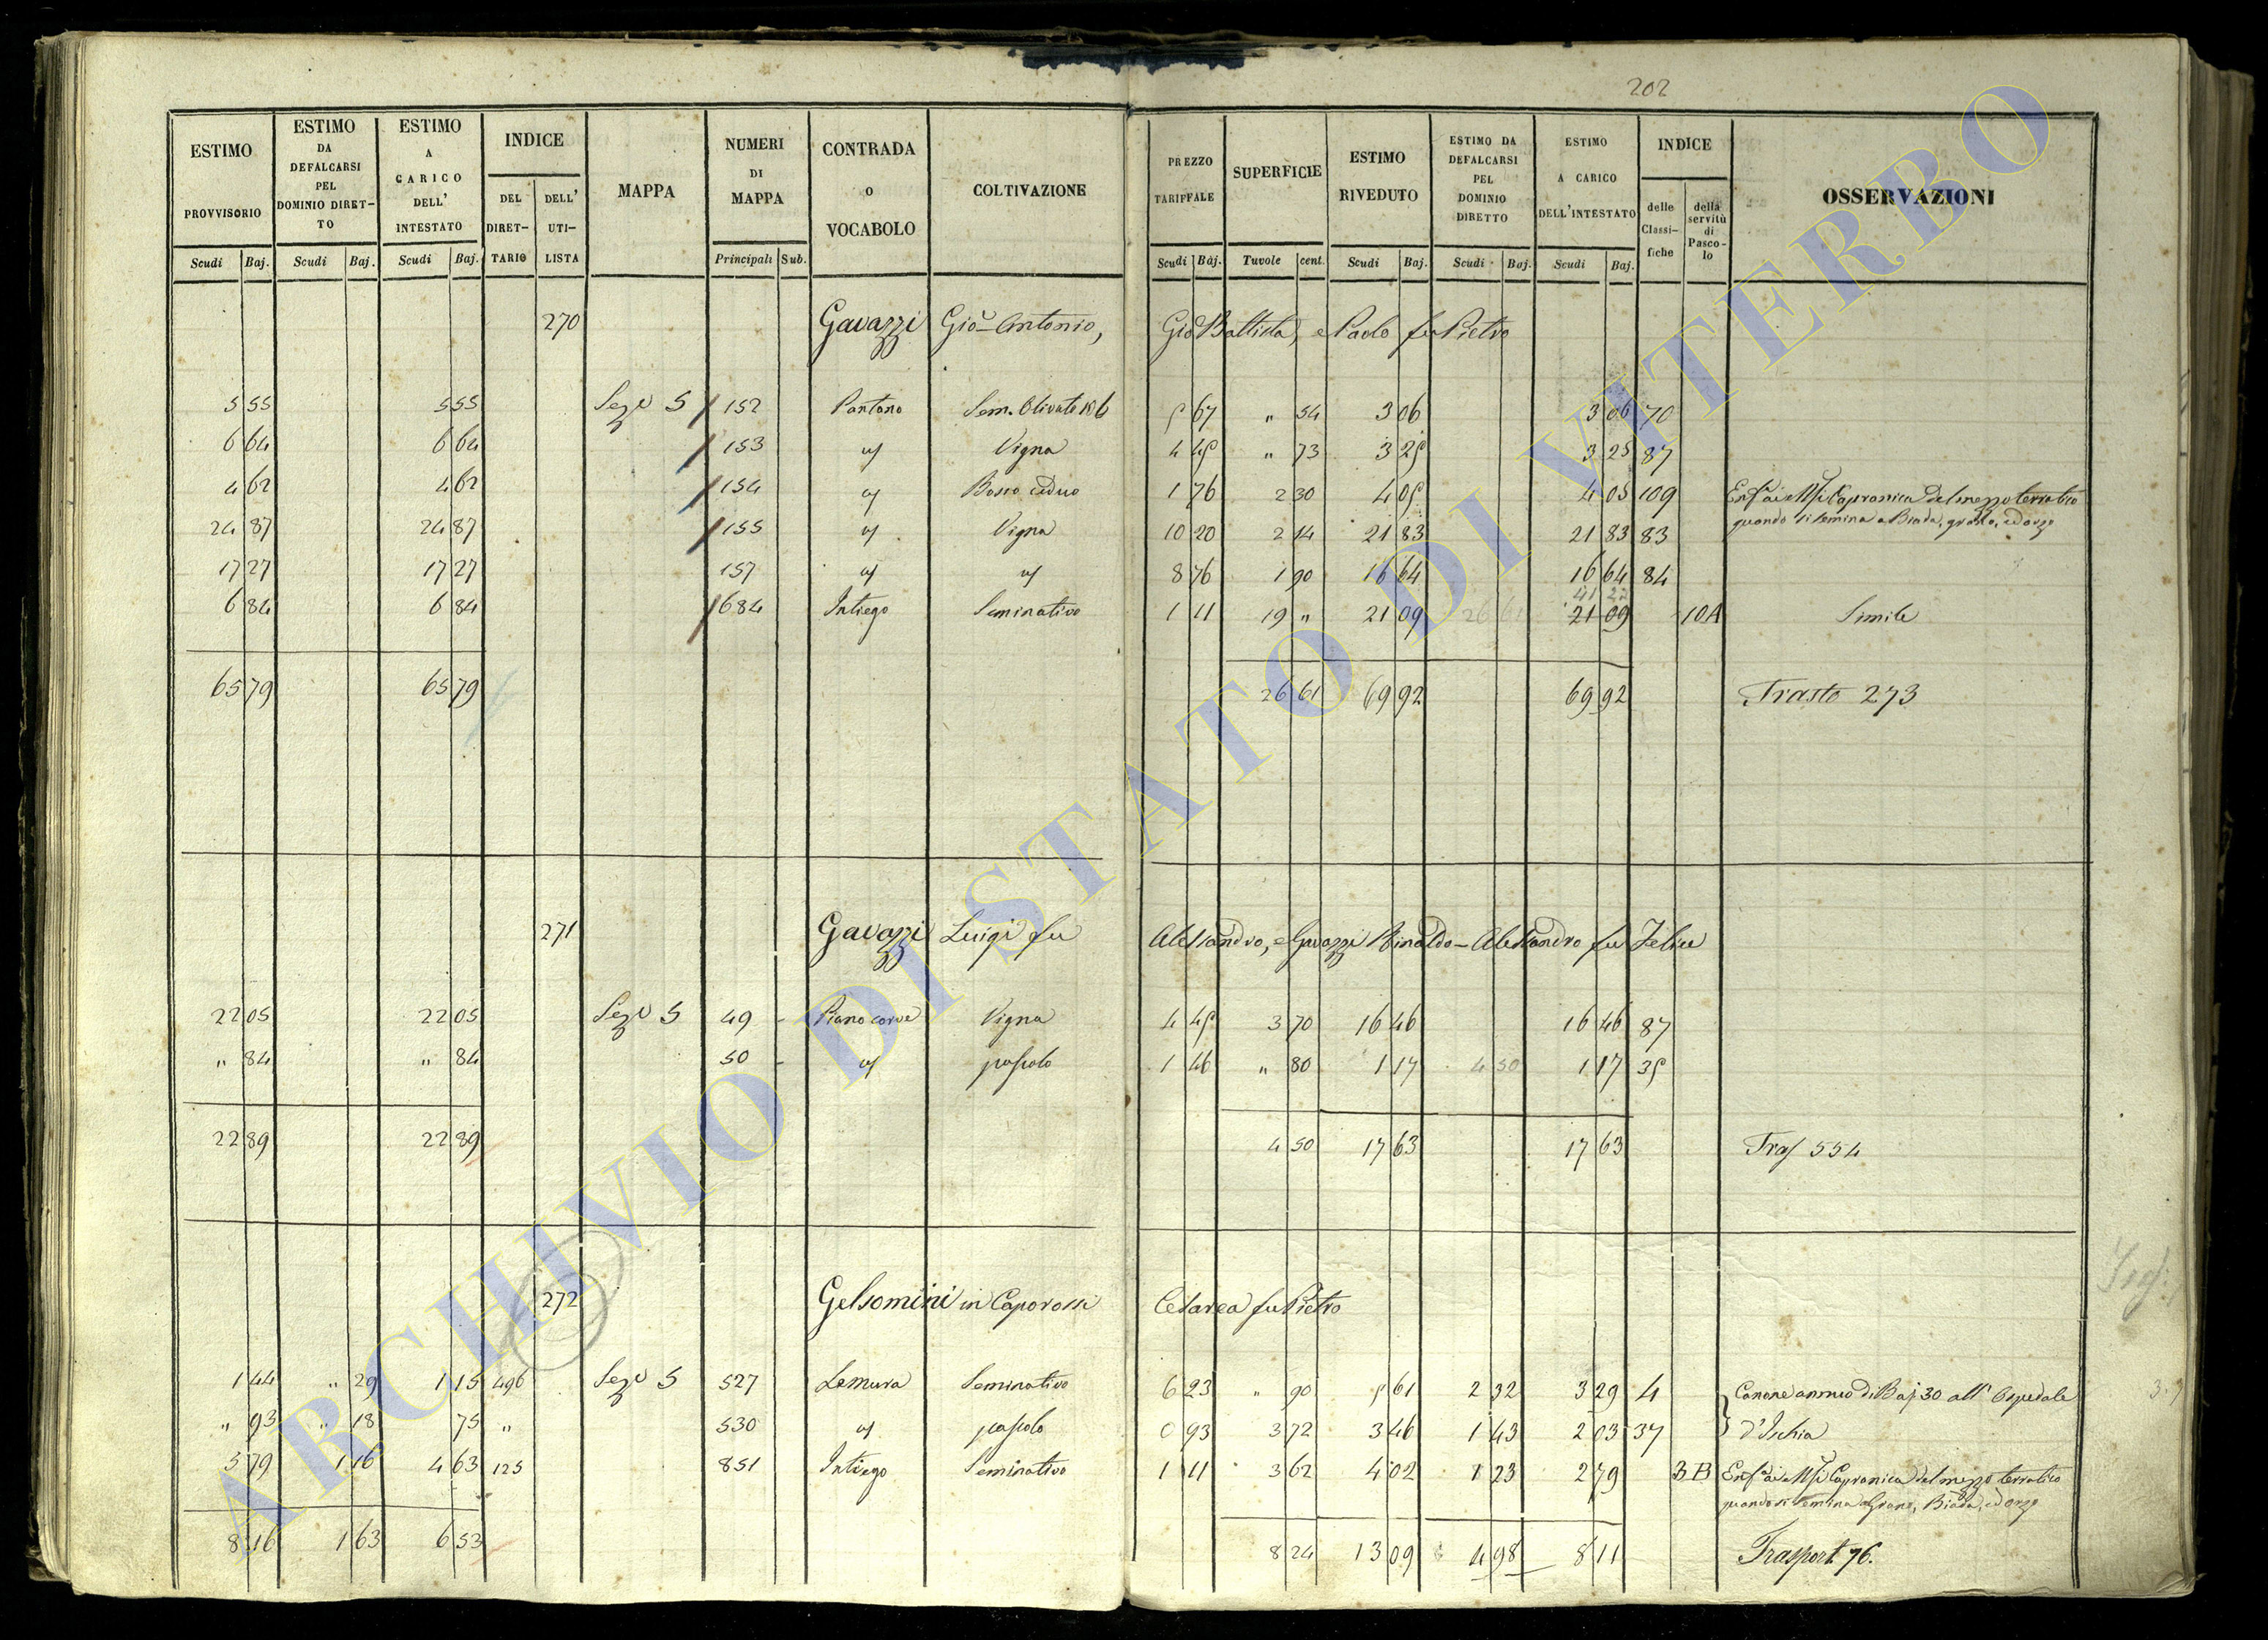 202
ESTIMO PROVVISORIO | ESTIMO DA DEFALCARSI PEL DOMINIO DIRET-TO | ESTIMO A CARICO DELL' INTESTATO | INDICE | MAPPA | NUMERI DI MAPPA | CONTRADA O VOCABOLO | COLTIVAZIONE | PREZZO TARIFFALE | SUPERFICIE | ESTIMO RIVEDUTO | ESTIMO DA DEFALCARSI PEL DOMINIO DIRETTO | ESTIMO A CARICO DELL'INTESTATO | INDICE | OSSERVAZIONI
DEL DIRET-TARIO | DELL' UTI-LISTA | delle Classi-fiche | della servitù di Pasco-lo
Scudi | Baj. | Scudi | Baj. | Scudi | Baj. | Principali | Sub. | Scudi | Baj. | Tavole | cent. | Scudi | Baj. | Scudi | Baj. | Scudi | Baj.
270 Gavazzi Gio Antonio, Gio Battista, e Paolo fu Pietro
5 55 | 5 55 | Seze 5 | 152 | Pantano | Sem. Olivato | 5 67 | " 54 | 3 06 | 3 06 | 70
6 64 | 6 64 | 153 | " | Vigna | 4 45 | " 73 | 3 25 | 3 25 | 87
4 62 | 4 62 | 154 | " | Bosco ceduo | 1 76 | 2 30 | 4 05 | 4 05 | 109 | Capranica del mezzo terratico
quando si semina a Biada, grano, ed orzo
24 87 | 24 87 | 155 | " | Vigna | 10 20 | 2 14 | 21 83 | 21 83 | 83
17 27 | 17 27 | 157 | " | " | 8 76 | 1 90 | 16 64 | 16 64 | 84
6 84 | 6 84 | 684 | Intiego | Seminativo | 1 11 | 19 " | 21 09 | 26 61 | 21 09 | 10A | Simile
65 79 | 65 79 | 26 61 | 69 92 | 69 92 | Trasto 273
271 Gavazzi Luigi fu Alessandro, e Gavazzi Rinaldo Alessandro fu Felice
22 05 | 22 05 | Seze 5 | 49 | Piano | Vigna | 4 45 | 3 70 | 16 46 | 16 46 | 87
" 84 | " 84 | 50 | " | pascolo | 1 46 | " 80 | 1 17 | 4 50 | 1 17 | 35
22 89 | 22 89 | 4 50 | 17 63 | 17 63 | Tras 554
272 Gelsomini in Caporossi Cesarea fu Pietro
1 44 | " 29 | 1 15 | 496 | Seze 5 | 527 | Lemura | Seminativo | 6 23 | " 90 | 5 61 | 2 32 | 3 29 | 4 | Canone annuo di Baj 30 all' Ospedale
" 93 | " 18 | 75 | " | 530 | " | pascolo | 0 93 | 3 72 | 3 46 | 1 43 | 2 03 | 37 | d'Ischia
5 79 | 1 16 | 4 63 | 125 | 851 | Intiego | Seminativo | 1 11 | 3 62 | 4 02 | 1 23 | 2 79 | BB | Capranica del mezzo terratico
quando si semina a Grano, Biada, ed orzo
8 16 | 1 63 | 6 53 | 8 24 | 13 09 | 4 98 | 8 11 | Trasport 76.
ARCHIVIO DI STATO DI VITERBO